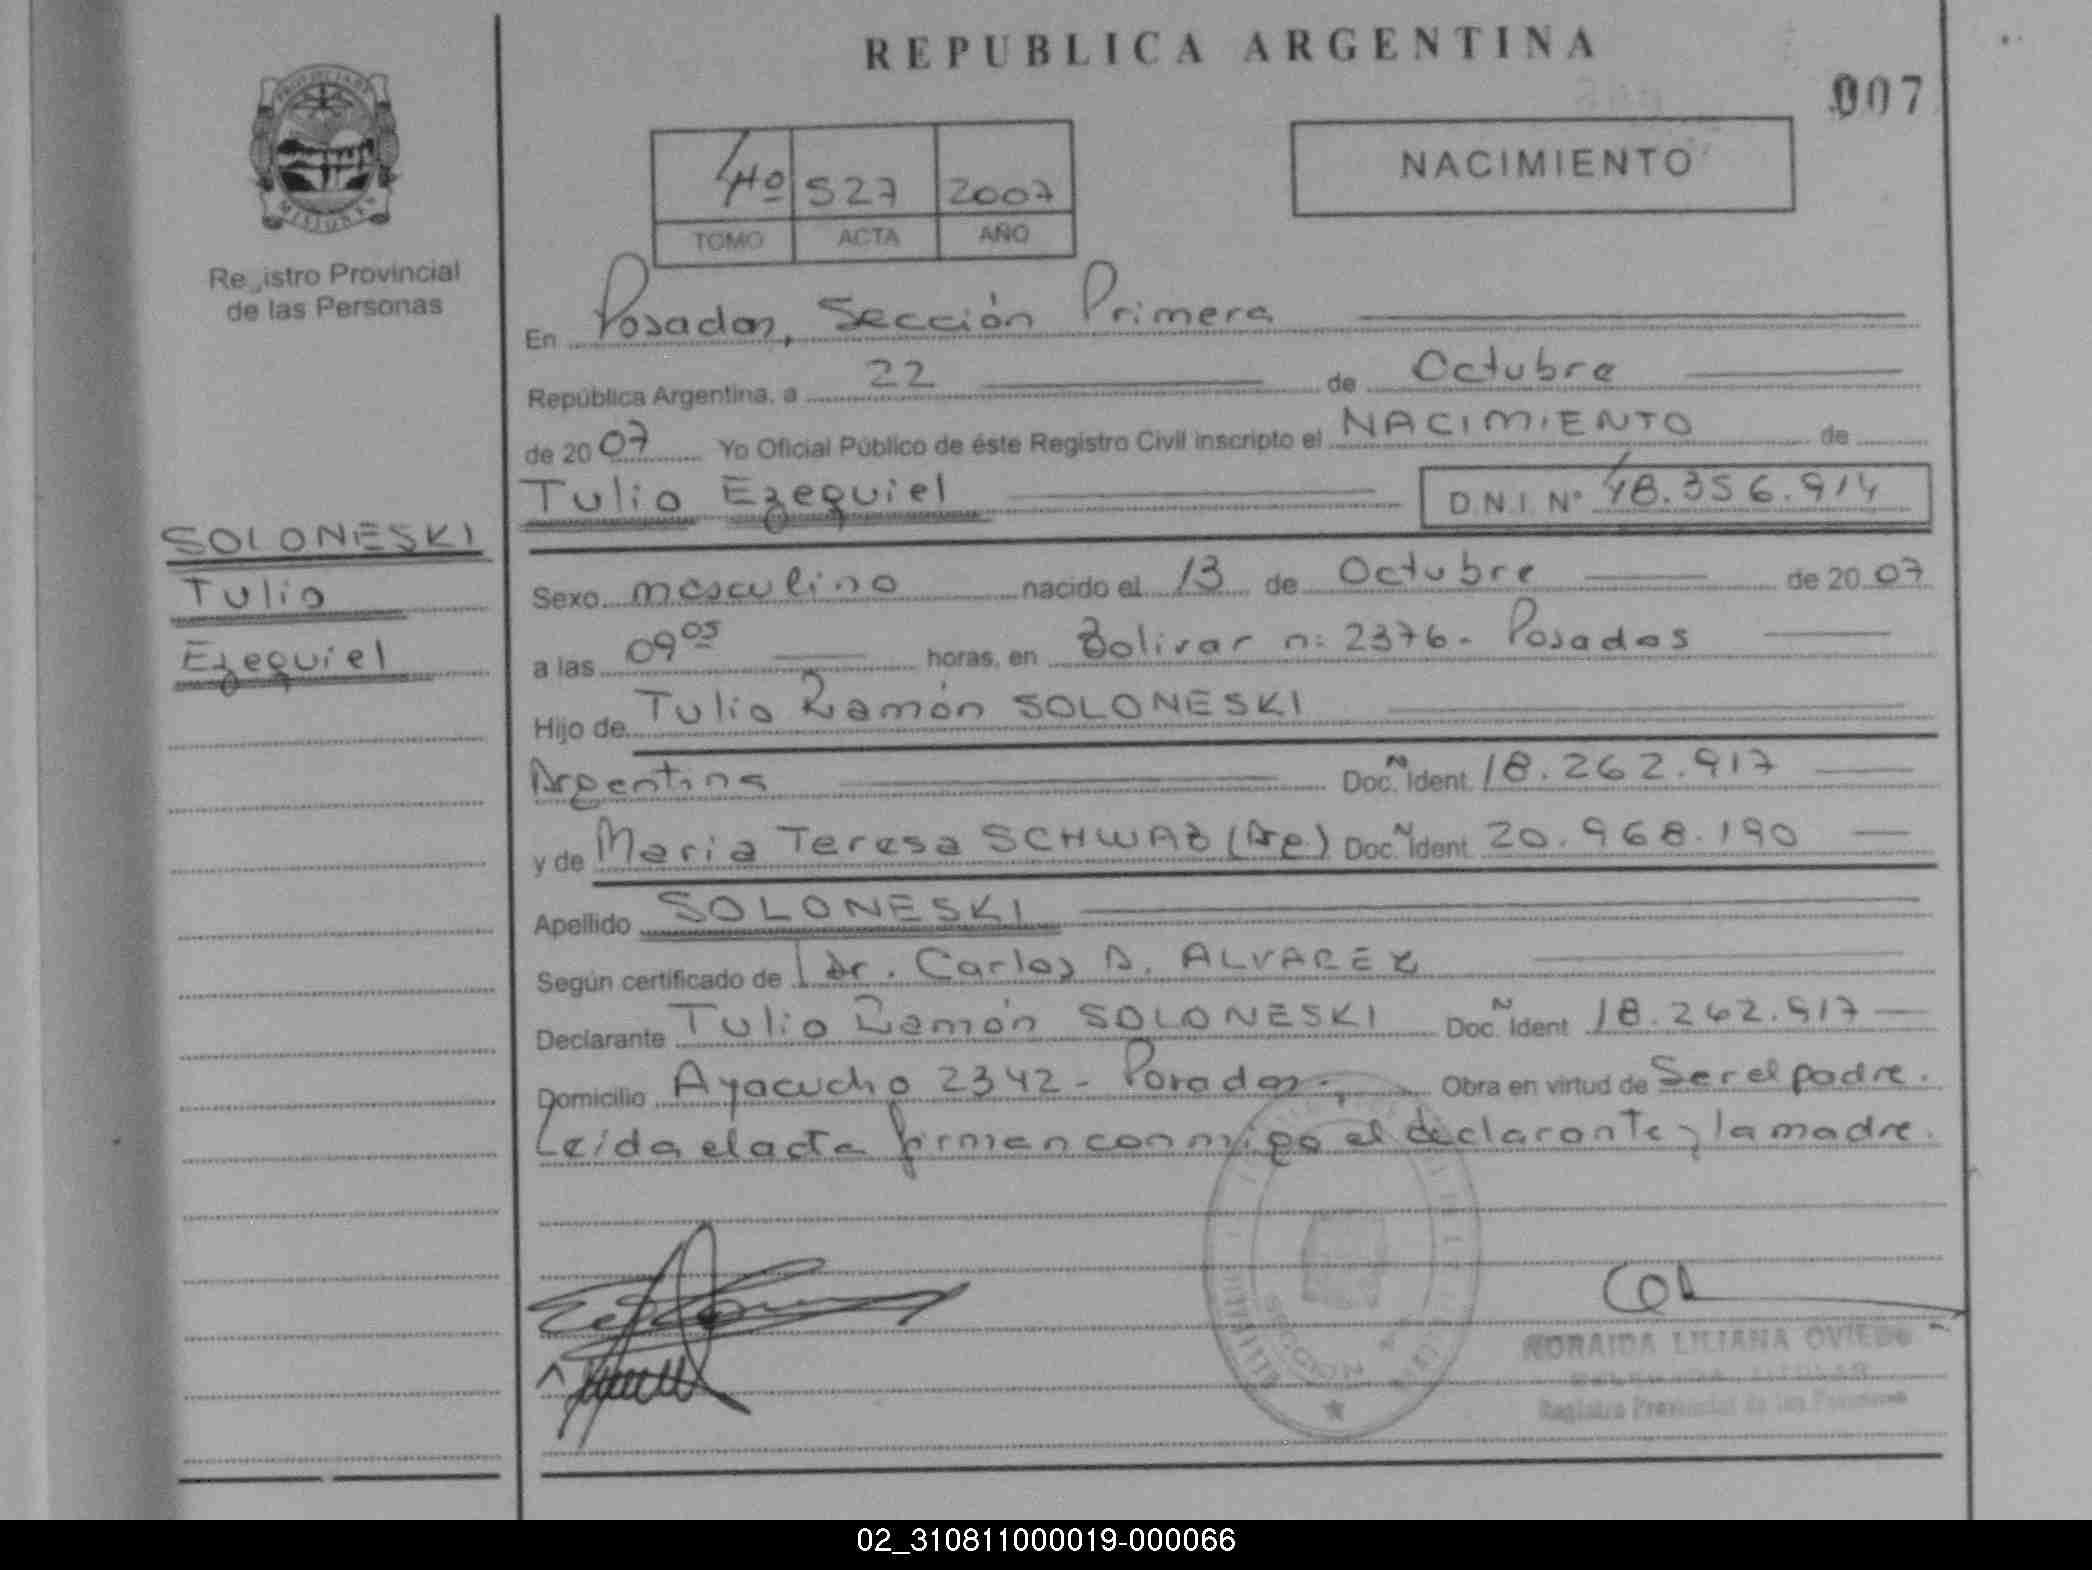 REPUBLICA ARGENTINA
007
PROVINCIA DE
MISIONES
Registro Provincial
de las Personas
4to 527 2007
TOMO ACTA AÑO
NACIMIENTO
En Posadas, Sección Primera
República Argentina, a 22 de Octubre
de 2007 Yo Oficial Público de éste Registro Civil inscripto el NACIMIENTO de
Tulio Ezequiel D.N.I. Nº 48.356.914
SOLONESKI
Tulio
Ezequiel
Sexo masculino nacido el 13 de Octubre de 2007
a las 09 05 horas, en Bolivar n: 2376 - Posadas
Hijo de Tulio Ramón SOLONESKI
Argentina Doc. N Ident. 18.262.917
y de Maria Teresa SCHWAB (Ar) Doc. N Ident. 20.968.190
Apellido SOLONESKI
Según certificado de Dr. Carlos A. ALVAREZ
Declarante Tulio Ramón SOLONESKI Doc. N Ident 18.262.917
Domicilio Ayacucho 2342 - Posadas - Obra en virtud de Ser el padre.
Leída el acta firman conmigo el declarante y la madre.
SECCION
LILIANA OVIEDO
Registro Provincial de las Personas
02_310811000019-000066